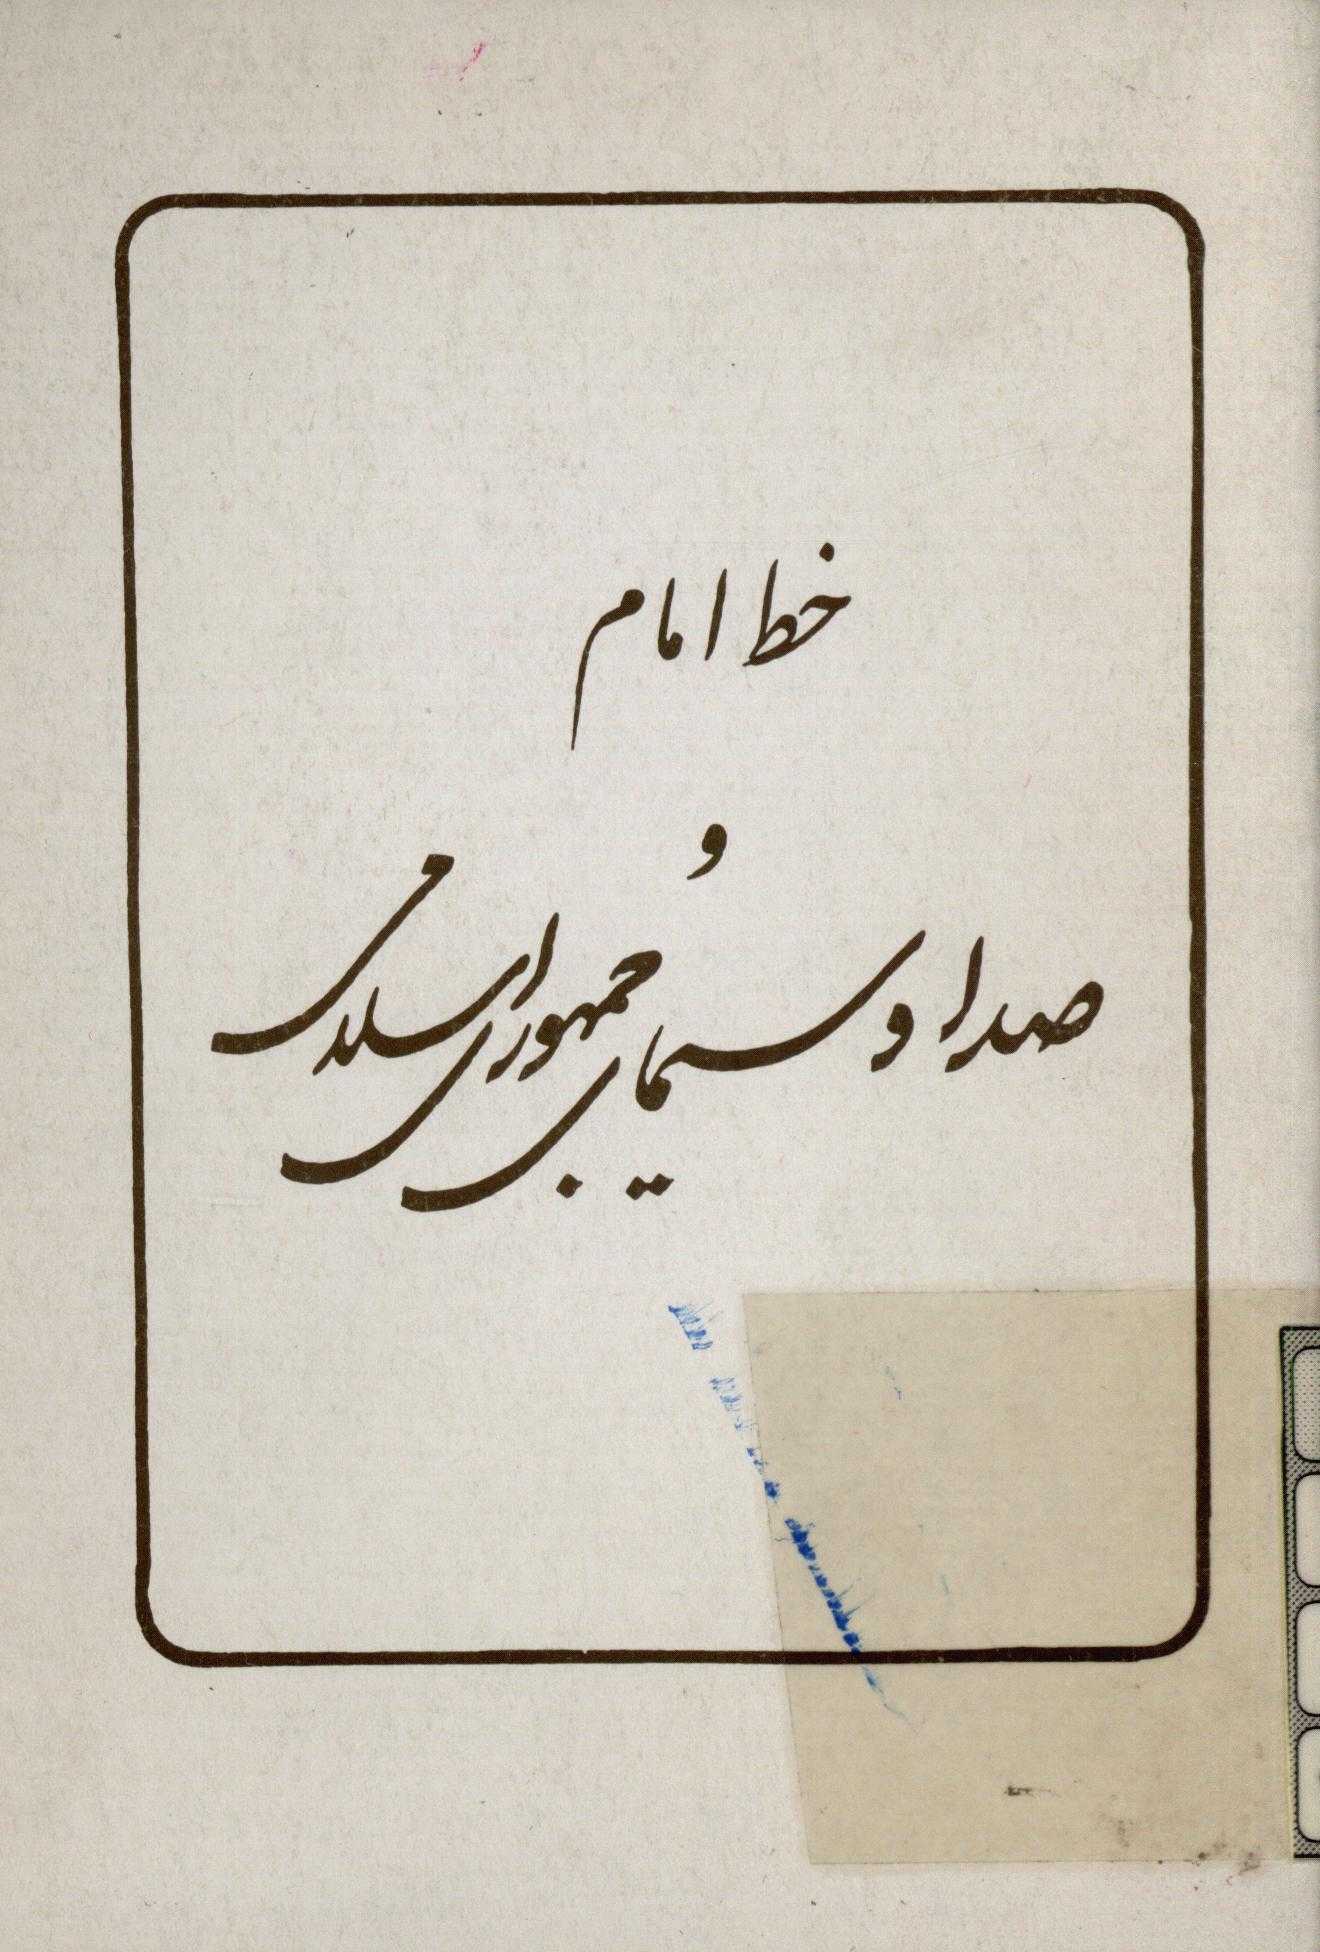 خط امام
و
صدا و سیمای جمهوری اسلامی